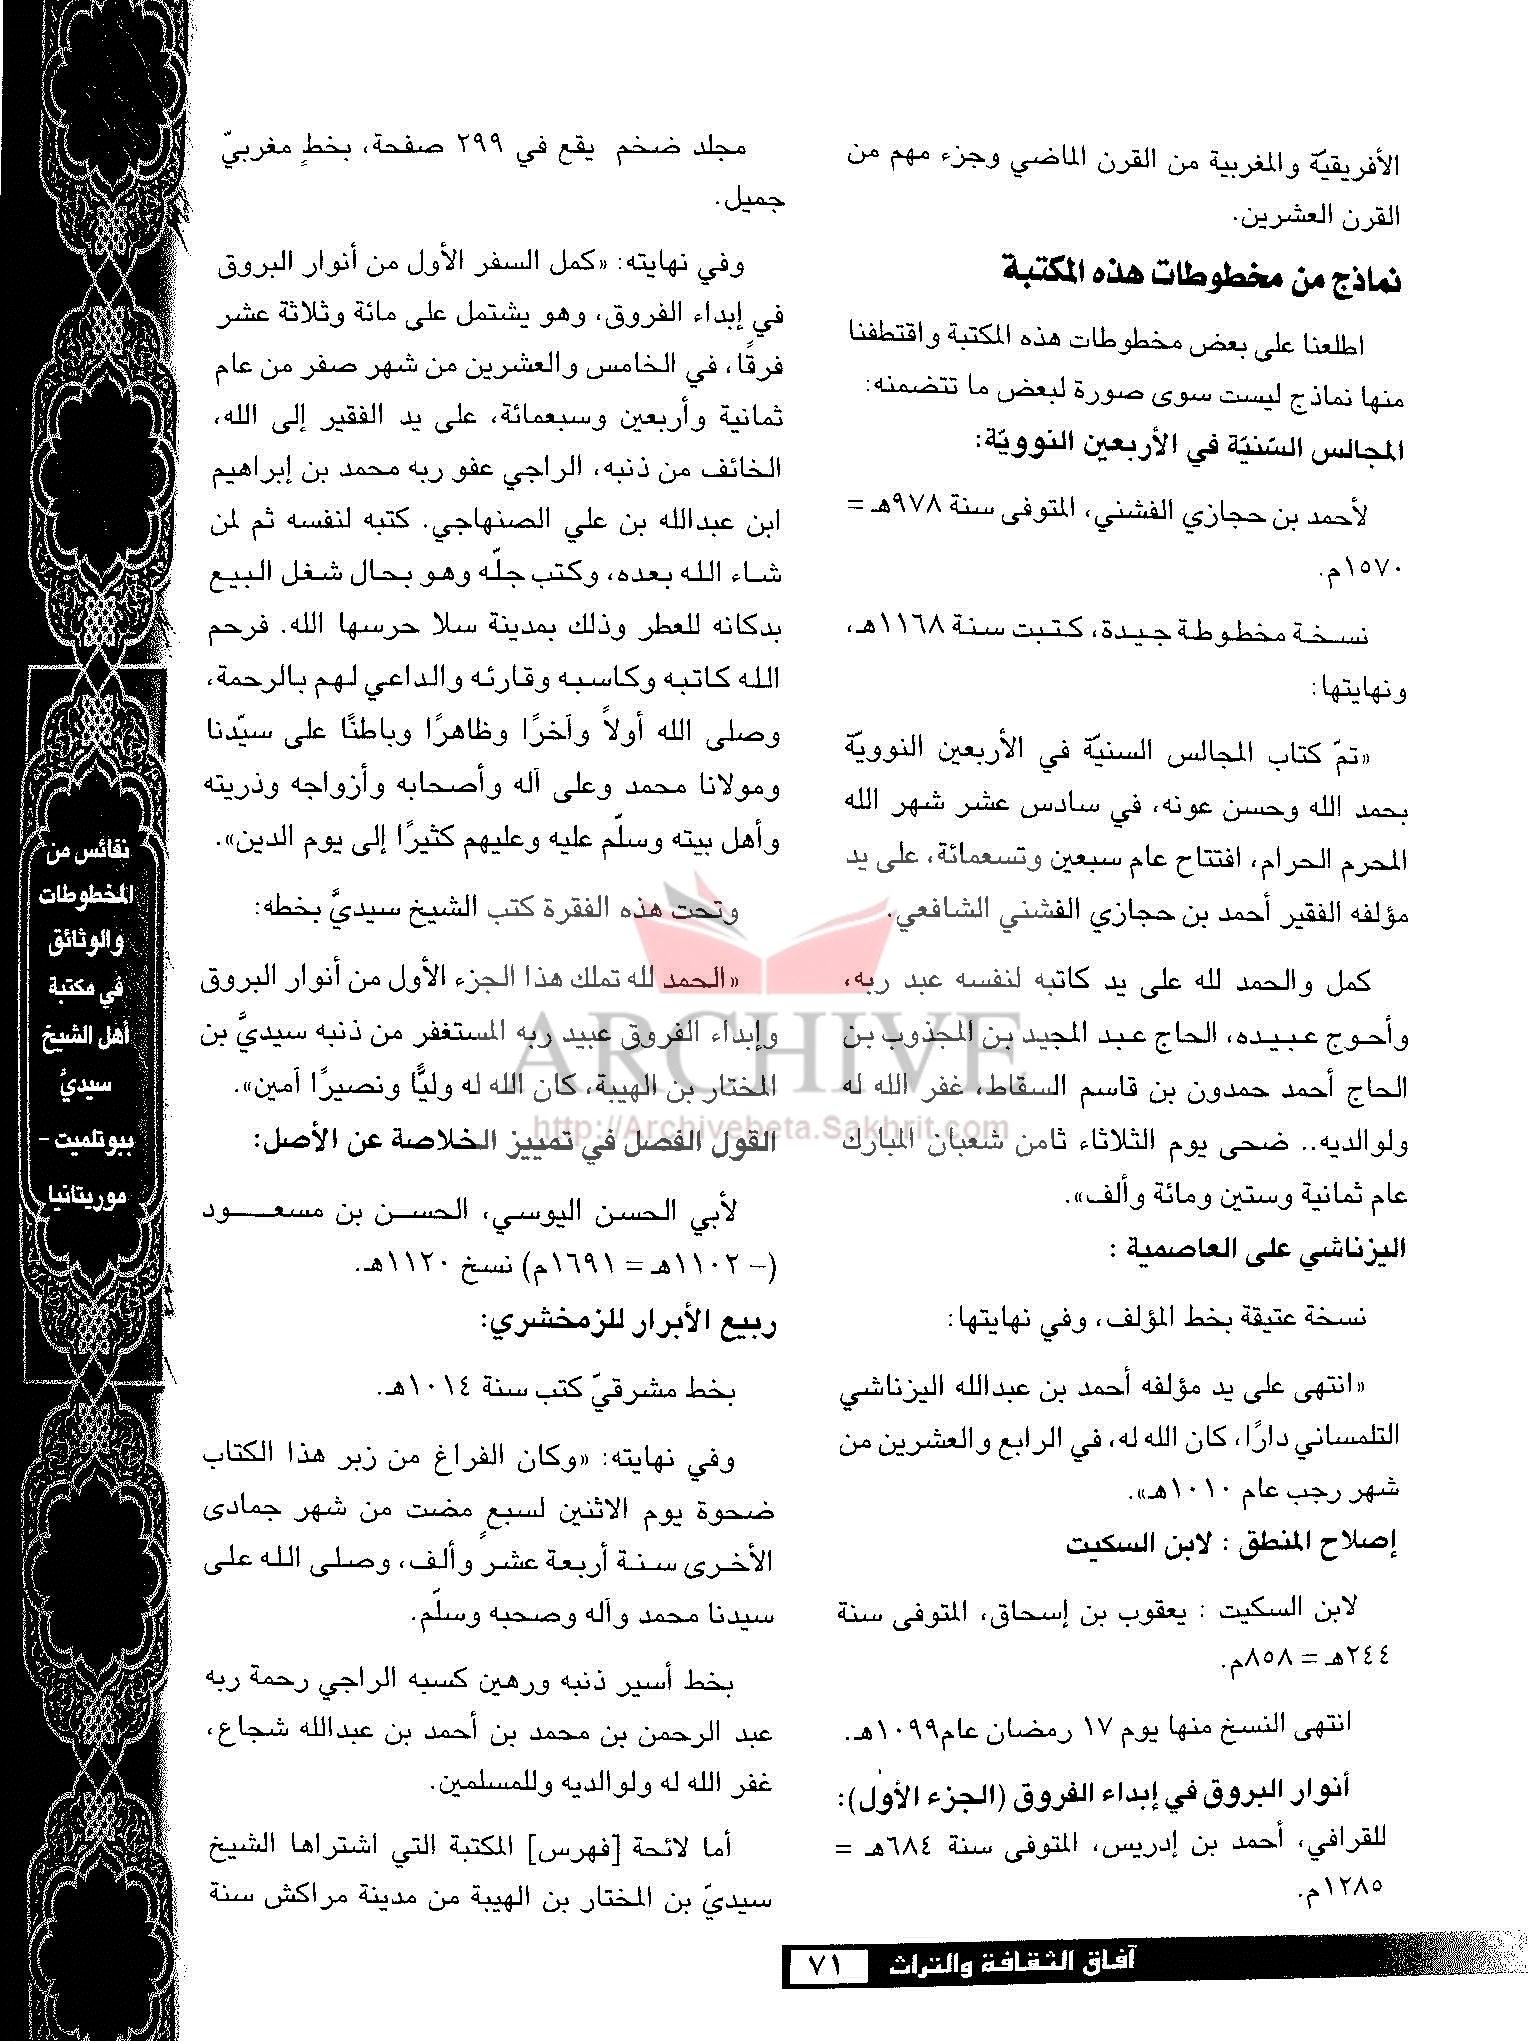 الأفريقيّة والمغربية من القرن الماضي وجزء مهم من
القرن العشرين.
نماذج من مخطوطات هذه المكتبة
اطلعنا على بعض مخطوطات هذه المكتبة واقتطفنا
منها نماذج ليست سوى صورة لبعض ما تتضمنه:
المجالس السّنيّة في الأربعين النوويّة:
لأحمد بن حجازي الفشني، المتوفى سنة ٩٧٨هـ =
١٥٧٠م.
نسخة مخطوطة جيدة، كتبت سنة ١١٦٨هـ،
ونهايتها:
«تمّ كتاب المجالس السنيّة في الأربعين النوويّة
بحمد الله وحسن عونه، في سادس عشر شهر الله
المحرم الحرام، افتتاح عام سبعين وتسعمائة، على يد
مؤلفه الفقير أحمد بن حجازي الفشني الشافعي.
كمل والحمد لله على يد كاتبه لنفسه عبد ربه،
وأحوج عبيده، الحاج عبد المجيد بن المجذوب بن
الحاج أحمد حمدون بن قاسم السقاط، غفر الله له
ولوالديه.. ضحى يوم الثلاثاء ثامن شعبان المبارك
عام ثمانية وستين ومائة وألف».
اليزناشي على العاصمية :
نسخة عتيقة بخط المؤلف، وفي نهايتها:
«انتهى على يد مؤلفه أحمد بن عبدالله اليزناشي
التلمساني دارًا، كان الله له، في الرابع والعشرين من
شهر رجب عام ١٠١٠هـ».
إصلاح المنطق : لابن السكيت
لابن السكيت : يعقوب بن إسحاق، المتوفى سنة
٢٤٤هـ = ٨٥٨م.
انتهى النسخ منها يوم ١٧ رمضان عام١٠٩٩هـ.
أنوار البروق في إبداء الفروق (الجزء الأول):
للقرافي، أحمد بن إدريس، المتوفى سنة ٦٨٤هـ =
١٢٨٥م.
مجلد ضخم يقع في ٢٩٩ صفحة، بخطٍ مغربيّ
جميل.
وفي نهايته: «كمل السفر الأول من أنوار البروق
في إبداء الفروق، وهو يشتمل على مائة وثلاثة عشر
فرقًا، في الخامس والعشرين من شهر صفر من عام
ثمانية وأربعين وسبعمائة، على يد الفقير إلى الله،
الخائف من ذنبه، الراجي عفو ربه محمد بن إبراهيم
ابن عبدالله بن علي الصنهاجي. كتبه لنفسه ثم لمن
شاء الله بعده، وكتب جلّه وهو بحال شغل البيع
بدكانه للعطر وذلك بمدينة سلا حرسها الله. فرحم
الله كاتبه وكاسبه وقارئه والداعي لهم بالرحمة،
وصلى الله أولاً وآخرًا وظاهرًا وباطنًا على سيّدنا
ومولانا محمد وعلى آله وأصحابه وأزواجه وذريته
وأهل بيته وسلّم عليه وعليهم كثيرًا إلى يوم الدين».
وتحت هذه الفقرة كتب الشيخ سيديَّ بخطه:
«الحمد لله تملك هذا الجزء الأول من أنوار البروق
وإبداء الفروق عبيد ربه المستغفر من ذنبه سيديَّ بن
المختار بن الهيبة، كان الله له وليًّا ونصيرًا آمين».
القول الفصل في تمييز الخلاصة عن الأصل:
لأبي الحسن اليوسي، الحسن بن مسعود
(– ١١٠٢هـ = ١٦٩١م) نسخ ١١٢٠هـ.
ربيع الأبرار للزمخشري:
بخط مشرقيّ كتب سنة ١٠١٤هـ.
وفي نهايته: «وكان الفراغ من زبر هذا الكتاب
ضحوة يوم الاثنين لسبعٍ مضت من شهر جمادى
الأخرى سنة أربعة عشر وألف، وصلى الله على
سيدنا محمد وآله وصحبه وسلّم.
بخط أسير ذنبه ورهين كسبه الراجي رحمة ربه
عبد الرحمن بن محمد بن أحمد بن عبدالله شجاع،
غفر الله له ولوالديه وللمسلمين.
أما لائحة [فهرس] المكتبة التي اشتراها الشيخ
سيديّ بن المختار بن الهيبة من مدينة مراكش سنة
نفائس من
المخطوطات
والوثائق
في مكتبة
أهل الشيخ
سيديَّ
ببوتلميت –
موريتانيا
ARCHIVE
http://Archivebeta.Sakhrit.com
آفاق الثقافة والتراث ٧١